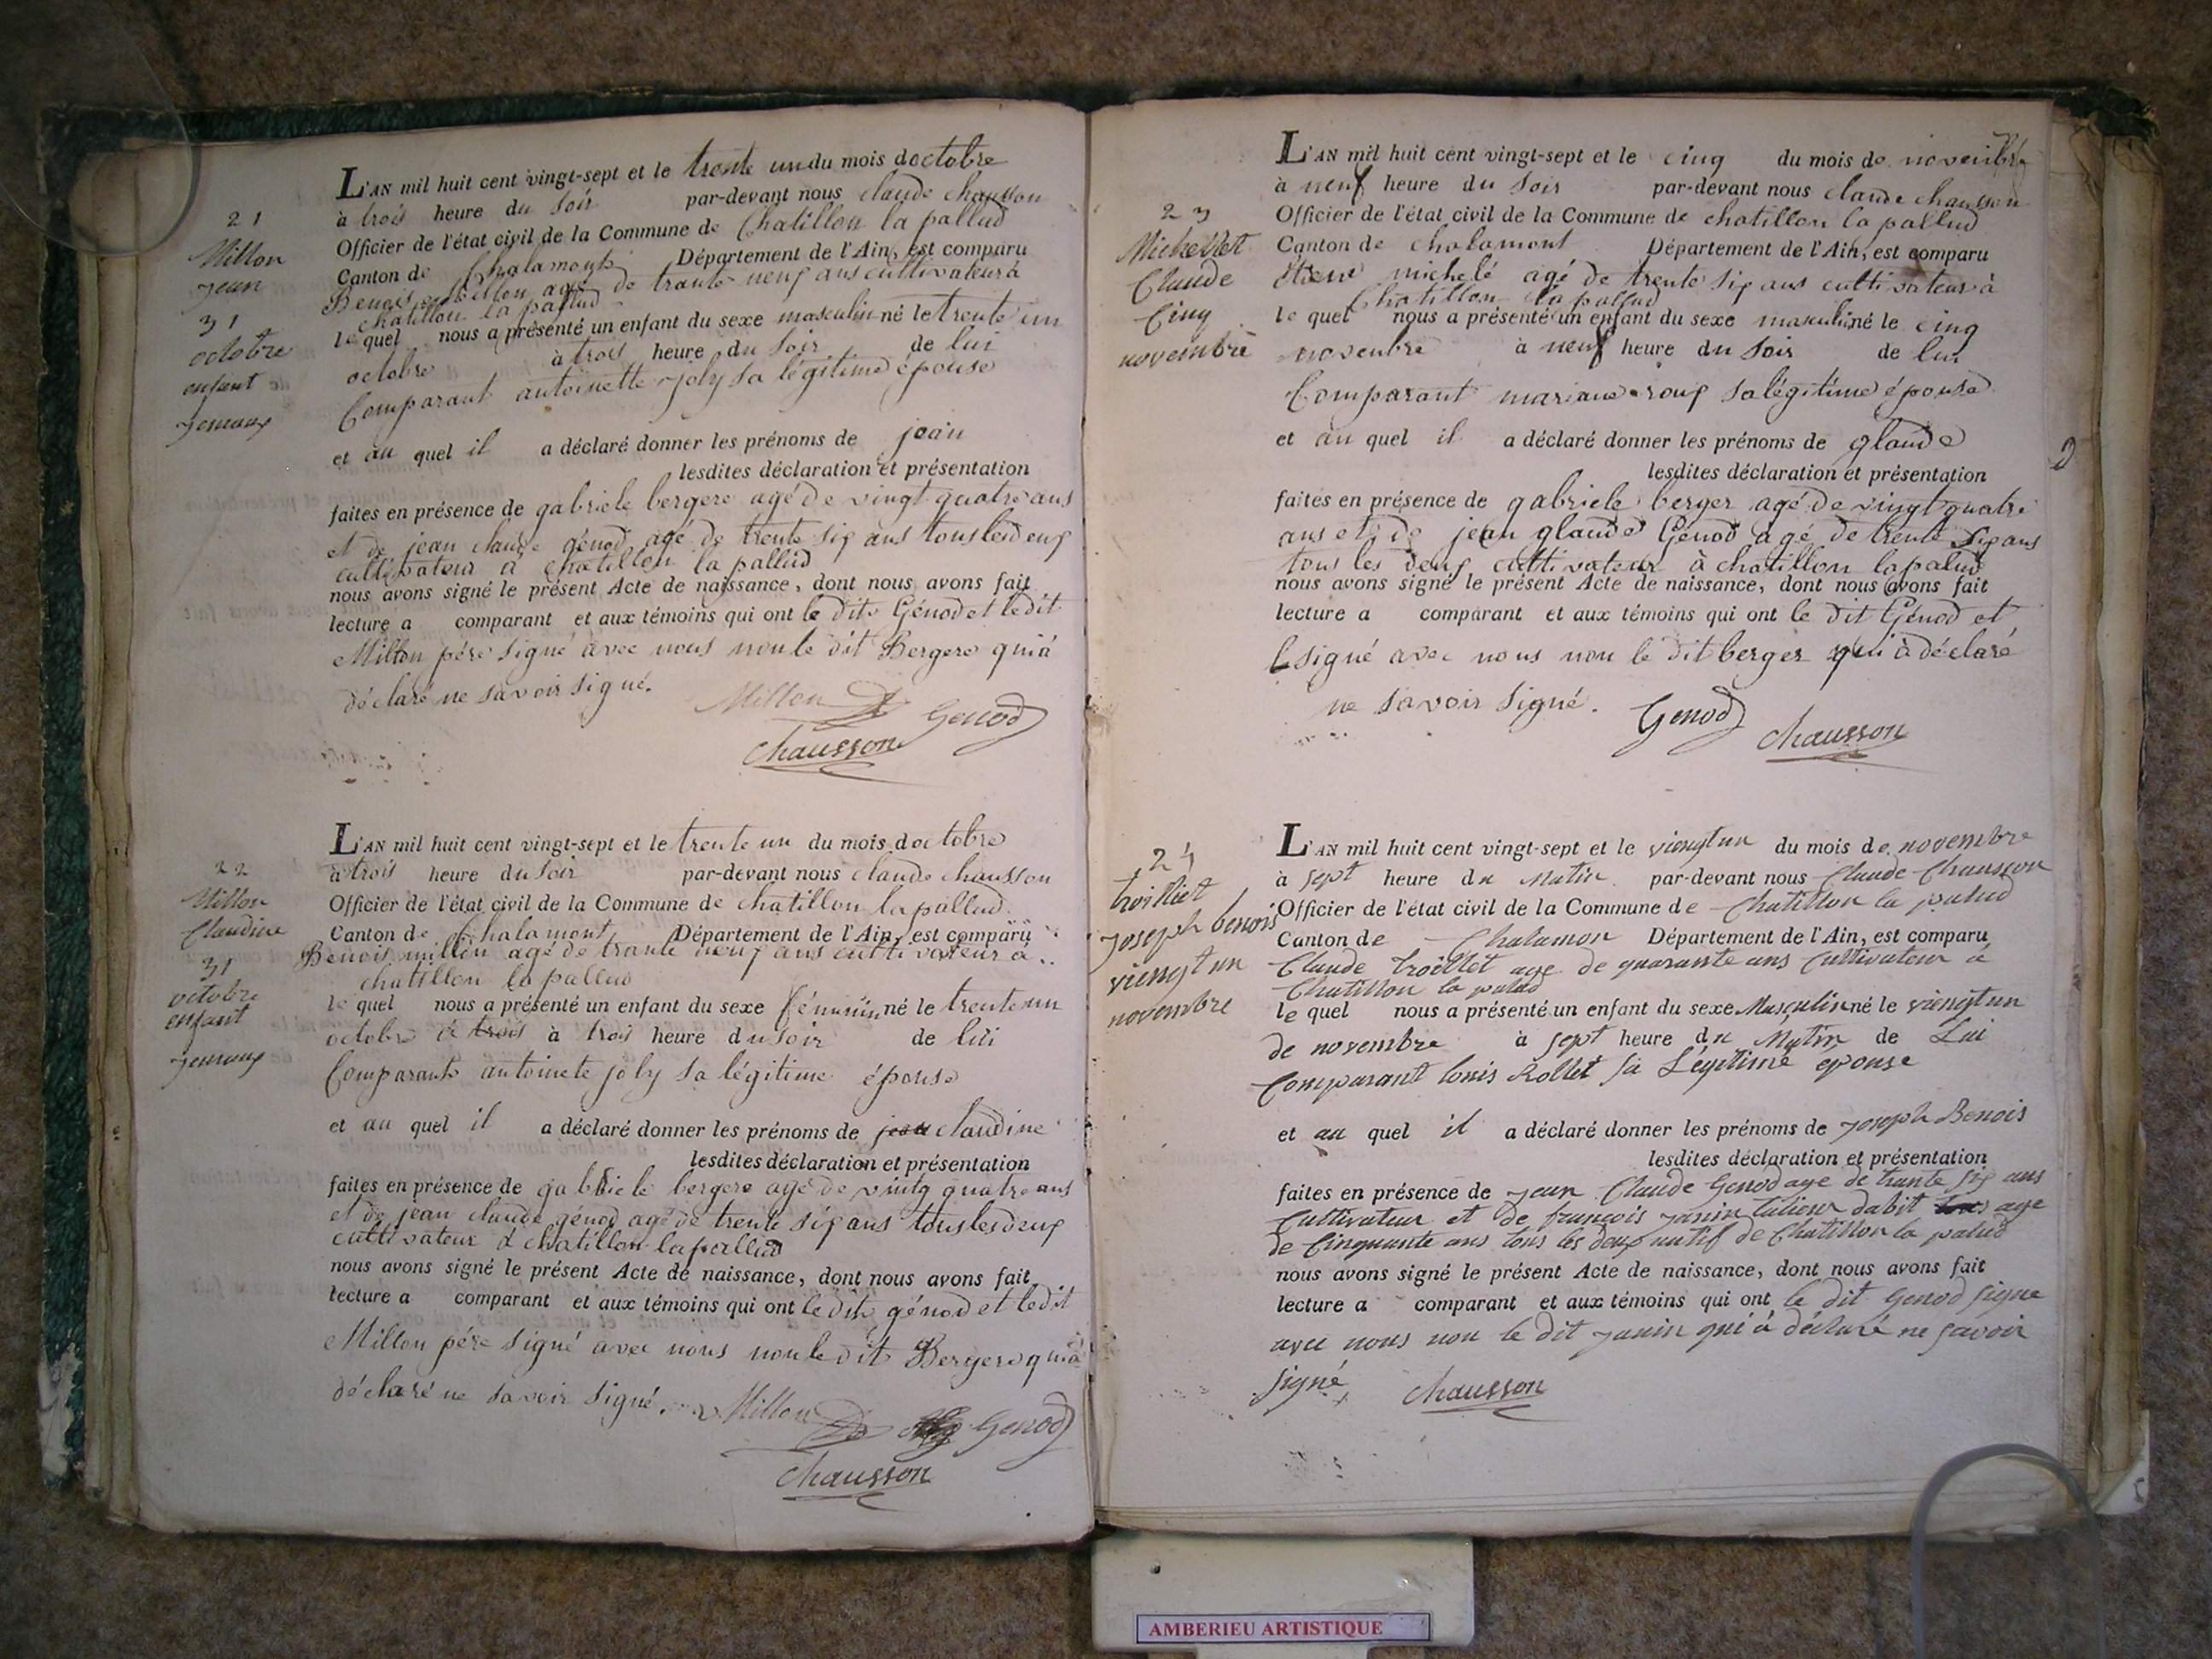 21
Millon
jean
31
octobre
enfant
jemaux
L'AN mil huit cent vingt-sept et le trente un du mois doctobre
à trois heure du soir par-devant nous claude chausson
Officier de l'état civil de la Commune de Chatillon la pallud
Canton de Chalamont Département de l'Ain, est comparu
Benois millon agé de trante neuf ans cultivateur à
chatillon la pallud
le quel nous a présenté un enfant du sexe masculin né le trente un
octobre à trois heure du soir de lui
Comparant antoinette joly sa légitime épouse
et au quel il a déclaré donner les prénoms de jean
lesdites déclaration et présentation
faites en présence de gabriele bergere agé de vingt quatre ans
et de jean claude génod agé de trente six ans tous les deux
cultivateur à chatillon la pallud
nous avons signé le présent Acte de naissance, dont nous avons fait
lecture a comparant et aux témoins qui ont le dit Génod et le dit
Millon pére signé avec nous non le dit Bergere qui à
déclaré ne savoir signé.
Millon Genod
Chausson
22
Millon
Claudine
31
octobre
enfant
jemaux
L'AN mil huit cent vingt-sept et le trente un du mois doctobre
à trois heure du soir par-devant nous claude chausson
Officier de l'état civil de la Commune de chatillon la pallud
Canton de Chalamont Département de l'Ain, est comparu
Benois millon agé de trante neuf ans cultivateur à
chatillon la pallud
le quel nous a présenté un enfant du sexe féminin né le trente un
octobre à trois à trois heure du soir de lui
Comparant antoinete joly sa légitime épouse
et au quel il a déclaré donner les prénoms de jean claudine
lesdites déclaration et présentation
faites en présence de gabriele bergere agé de vintg quatre ans
et de jean claude génod agé de trente six ans tous les deux
cultivateur à chatillon la pallud
nous avons signé le présent Acte de naissance, dont nous avons fait
lecture a comparant et aux témoins qui ont le dit génod et le dit
Millon pére signé avec nous non le dit Bergere qui à
déclaré ne savoir signé.
Millon Genod
Chausson
23
Michellet
Claude
Cinq
novembre
L'AN mil huit cent vingt-sept et le cinq du mois de novembre
à neuf heure du soir par-devant nous claude chausson
Officier de l'état civil de la Commune de chatillon la pallud
Canton de chalamont Département de l'Ain, est comparu
michelé agé de trente six ans cultivateur à
Chatillon la pallud
le quel nous a présenté un enfant du sexe masculin né le cinq
novembre à neuf heure du soir de lui
Comparant mariane roux sa légitime épouse
et au quel il a déclaré donner les prénoms de glaude
lesdites déclaration et présentation
faites en présence de gabriele berger agé de vingt quatre
ans et de jean glaude Génod agé de trente six ans
tous les deux cultivateur à chatillon la palud
nous avons signé le présent Acte de naissance, dont nous avons fait
lecture a comparant et aux témoins qui ont le dit Génod et
signé avec nous non le dit berger qui à déclaré
ne savoir signé.
Genod
Chausson
24
troilliet
joseph benois
viengt un
novembre
L'AN mil huit cent vingt-sept et le viengt un du mois de novembre
à sept heure du Matin par-devant nous Claude Chausson
Officier de l'état civil de la Commune de Chatillon la palud
Canton de Chalamon Département de l'Ain, est comparu
Claude troillet age de quarante ans Cultivateur a
Chatillon la palud
le quel nous a présenté un enfant du sexe Masculin né le viengt un
de novembre à sept heure du Matin de Lui
Comparant louis Rollet sa Légitime epouse
et au quel il a déclaré donner les prénoms de joseph Benois
lesdites déclaration et présentation
faites en présence de jean Claude Genod age de trante six ans
Cultivateur et de francois janin talieur dabit age
de Cinquante ans tous les deux natif de Chatillon la palud
nous avons signé le présent Acte de naissance, dont nous avons fait
lecture a comparant et aux témoins qui ont le dit Genod signe
avec nous non le dit janin qui à déclaré ne savoir
signé
Chausson
AMBERIEU ARTISTIQUE